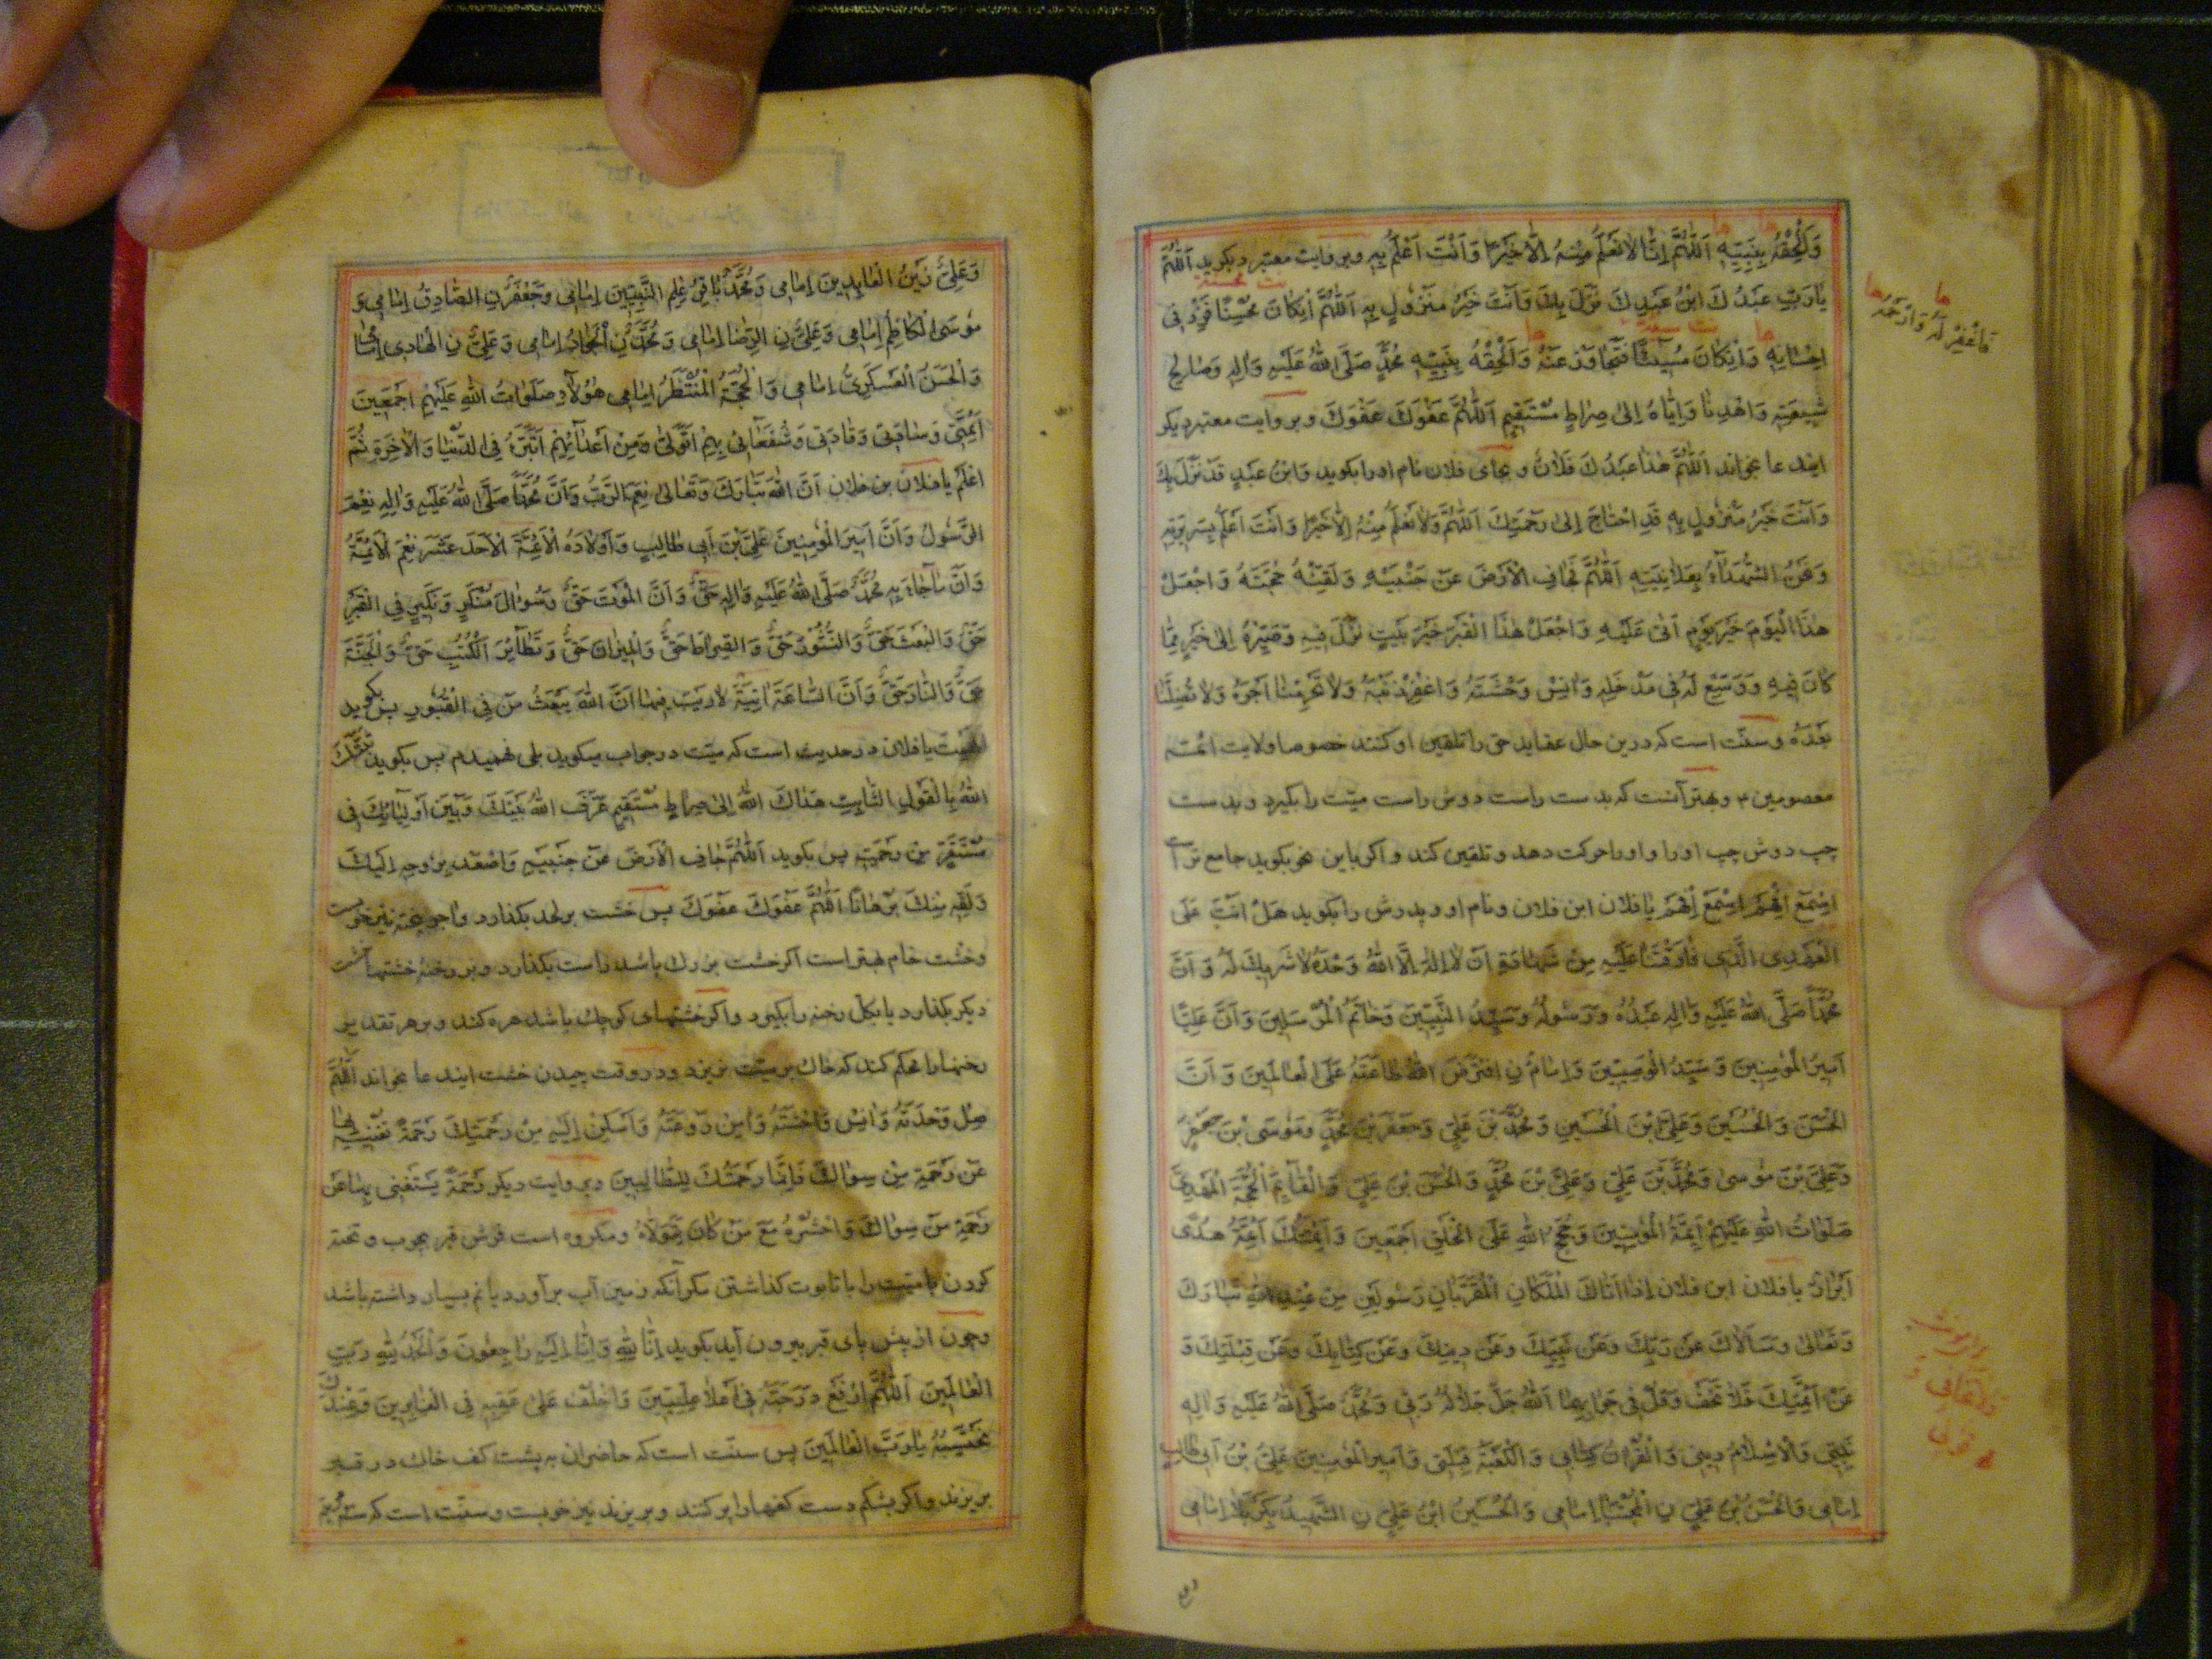 وَاَلْحِقْهُ بِنَبِيِّهِ اَللّٰهُمَّ اِنّٰا لاٰ نَعْلَمُ مِنْهُ اِلاّٰ خَيْرًا وَاَنْتَ اَعْلَمُ بِهِ وبروایت معتبر دیکر بکوید اَللّٰهُمَّ
يٰا رَبِّ عَبْدُكَ ابْنُ عَبْدِكَ نَزَلَ بِكَ وَاَنْتَ خَيْرُ مَنْزُولٍ بِهِ اَللّٰهُمَّ اِنْكٰانَ مُحْسِنًا فَزِدْ فى
اِحْسٰانِهِ وَاِنْكٰانَ مُسِيْئًا فَتَجٰاوَزْ عَنْهُ وَاَلْحِقْهُ بِنَبِيِّهِ مُحَمَّدٍ صَلَّى اللّٰهُ عَلَيْهِ وَاٰلِهِ وَصٰالِحِ
شِيعَتِهِ وَاهْدِنٰا وَاِيّٰاهُ اِلىٰ صِرٰاطٍ مُسْتَقِيمٍ اَللّٰهُمَّ عَفْوَكَ عَفْوَكَ وبروایت معتبر دیکر
ایندعا بخواند اَللّٰهُمَّ هٰذٰا عَبْدُكَ فلان وبجای فلان نام او را بکوید وَابْنُ عَبْدِكَ قَدْ نَزَلَ بِكَ
وَاَنْتَ خَيْرُ مَنْزُولٍ بِهِ قَدِ احْتٰاجَ اِلىٰ رَحْمَتِكَ اَللّٰهُمَّ وَلاٰ نَعْلَمُ مِنْهُ اِلاّٰ خَيْرًا وَاَنْتَ اَعْلَمُ بِسَرِيرَتِهِ
وَنَحْنُ الشُّهَدٰاءُ بِعَلاٰنِيَتِهِ اَللّٰهُمَّ فَجٰافِ الْاَرْضَ عَنْ جَنْبَيْهِ وَلَقِّنْهُ حُجَّتَهُ وَاجْعَلْ
هٰذَا الْيَوْمَ خَيْرَ يَوْمٍ اَتىٰ عَلَيْهِ وَاجْعَلْ هٰذَا الْقَبْرَ خَيْرَ بَيْتٍ نَزَلَ فِيهِ وَصَيِّرْهُ اِلىٰ خَيْرٍ مِمّٰا
كٰانَ فِيهِ وَوَسِّعْ لَهُ فى مَدْخَلِهِ وَاٰنِسْ وَحْشَتَهُ وَاغْفِرْ ذَنْبَهُ وَلاٰ تَحْرِمْنٰا اَجْرَهُ وَلاٰ تُضِلَّنٰا
بَعْدَهُ وسنّت است که درین حال عقاید حق را تلقین او کنند خصوصا ولایت ائمه
معصومین ٤ وبهتر آنست که بدست راست دوش راست میّت را بکیرد وبدست
چپ دوش چپ او را و او را حرکت دهد وتلقین کند واکر باین نحو بکوید جامع تر است
اِسْمَعْ اِفْهَمْ اِسْمَعْ اِفْهَمْ يٰا فلان ابن فلان ونام او وپدرش را بکوید هَلْ اَنْتَ عَلَى
الْعَهْدِ الَّذِى فٰارَقْتَنٰا عَلَيْهِ مِنْ شَهٰادَةِ اَنْ لاٰ اِلٰهَ اِلاَّ اللّٰهُ وَحْدَهُ لاٰ شَرِيكَ لَهُ وَاَنَّ
مُحَمَّدًا صَلَّى اللّٰهُ عَلَيْهِ وَاٰلِهِ عَبْدُهُ وَرَسُولُهُ وَسَيِّدُ النَّبِيِّينَ وَخٰاتَمُ الْمُرْسَلِينَ وَاَنَّ عَلِيًّا
اَمِيرُ الْمُؤْمِنِينَ وَسَيِّدُ الْوَصِيِّينَ وَاِمٰامُ نِ افْتَرَضَ اللّٰهُ طٰاعَتَهُ عَلَى الْعٰالَمِينَ وَاَنَّ
الْحَسَنَ وَالْحُسَيْنَ وَعَلِيَّ بْنَ الْحُسَيْنِ وَمُحَمَّدَ بْنَ عَلِيٍّ وَجَعْفَرَ بْنَ مُحَمَّدٍ وَمُوسَى بْنَ جَعْفَرٍ
وَعَلِيَّ بْنَ مُوسىٰ وَمُحَمَّدَ بْنَ عَلِيٍّ وَعَلِيَّ بْنَ مُحَمَّدٍ وَالْحَسَنَ بْنَ عَلِيٍّ وَالْقٰائِمَ الْحُجَّةَ الْمَهْدِىَّ
صَلَوٰاتُ اللّٰهِ عَلَيْهِمْ اَئِمَّةُ الْمُؤْمِنِينَ وَحُجَجُ اللّٰهِ عَلَى الْخَلْقِ اَجْمَعِينَ وَاَئِمَّتُكَ اَئِمَّةُ هُدًى
اَبْرٰارٌ يا فلان ابن فلان اِذٰا اَتٰاكَ الْمَلَكٰانِ الْمُقَرَّبٰانِ رَسُولَيْنِ مِنْ عِنْدِ اللّٰهِ تَبٰارَكَ
وَتَعٰالىٰ وَسَاَلاٰكَ عَنْ رَبِّكَ وَعَنْ نَبِيِّكَ وَعَنْ دِينِكَ وَعَنْ كِتٰابِكَ وَعَنْ قِبْلَتِكَ وَ
عَنْ اَئِمَّتِكَ فَلاٰ تَخَفْ وَقُلْ فى جَوٰابِهِمٰا اَللّٰهُ جَلَّ جَلاٰلُهُ رَبِّى وَمُحَمَّدٌ صَلَّى اللّٰهُ عَلَيْهِ وَاٰلِهِ
نَبِيِّى وَالْاِسْلاٰمُ دِينِى وَالْقُرْاٰنُ كِتٰابِى وَالْكَعْبَةُ قِبْلَتِى وَاَمِيرُ الْمُؤْمِنِينَ عَلِيُّ بْنُ اَبِى طٰالِبٍ
اِمٰامِى وَالْحَسَنُ بْنُ عَلِيٍّ نِ الْمُجْتَبىٰ اِمٰامِى وَالْحُسَيْنُ ابْنُ عَلِيٍّ نِ الشَّهِيدُ بِكَرْبَلاٰ اِمٰامِى
فَاغْفِرْ لَهُ وَارْحَمْهُ
وَعَلِيٌّ زَيْنُ الْعٰابِدِينَ اِمٰامِى وَمُحَمَّدٌ بٰاقِرُ عِلْمِ النَّبِيِّينَ اِمٰامِى وَجَعْفَرُ نِ الصّٰادِقُ اِمٰامِى وَ
مُوسَى الْكٰاظِمُ اِمٰامِى وَعَلِيُّ نِ الرِّضٰا اِمٰامِى وَمُحَمَّدُ نِ الْجَوٰادُ اِمٰامِى وَعَلِيُّ نِ الْهٰادِى اِمٰامِى
وَالْحَسَنُ الْعَسْكَرِىُّ اِمٰامِى وَالْحُجَّةُ الْمُنْتَظَرُ اِمٰامِى هٰؤُلاٰءِ صَلَوٰاتُ اللّٰهِ عَلَيْهِمْ اَجْمَعِينَ
اَئِمَّتِى وَسٰادَتِى وَقٰادَتِى وَشُفَعٰائِى بِهِمْ اَتَوَلّىٰ وَمِنْ اَعْدٰائِهِمْ اَتَبَرَّءُ فِى الدُّنْيٰا وَالْاٰخِرَةِ ثُمَّ
اعْلَمْ يٰا فلان بن فلان اَنَّ اللّٰهَ تَبٰارَكَ وَتَعٰالىٰ نِعْمَ الرَّبُّ وَاَنَّ مُحَمَّدًا صَلَّى اللّٰهُ عَلَيْهِ وَاٰلِهِ نِعْمَ
الرَّسُولُ وَاَنَّ اَمِيرَ الْمُؤْمِنِينَ عَلِيَّ بْنَ اَبِى طٰالِبٍ وَاَوْلاٰدَهُ الْاَئِمَّةَ الْاَحَدَ عَشَرَ نِعْمَ الْاَئِمَّةُ
وَاَنَّ مٰا جٰاءَ بِهِ مُحَمَّدٌ صَلَّى اللّٰهُ عَلَيْهِ وَاٰلِهِ حَقٌّ وَاَنَّ الْمَوْتَ حَقٌّ وَسُؤٰالَ مُنْكَرٍ وَنَكِيرٍ فِى الْقَبْرِ
حَقٌّ وَالْبَعْثَ حَقٌّ وَالنُّشُورَ حَقٌّ وَالصِّرٰاطَ حَقٌّ وَالْمِيزٰانَ حَقٌّ وَتَطٰايُرَ الْكُتُبِ حَقٌّ وَالْجَنَّةَ
حَقٌّ وَالنّٰارَ حَقٌّ وَاَنَّ السّٰاعَةَ اٰتِيَةٌ لاٰ رَيْبَ فِيهٰا وَاَنَّ اللّٰهَ يَبْعَثُ مَنْ فِى الْقُبُورِ پس بکوید
اَفَهِمْتَ يا فلان در حدیث است که میّت در جواب میکوید بلی فهمیدم پس بکوید ثَبَّتَكَ
اللّٰهُ بِالْقَوْلِ الثّٰابِتِ هَدٰاكَ اللّٰهُ اِلىٰ صِرٰاطٍ مُسْتَقِيمٍ عَرَّفَ اللّٰهُ بَيْنَكَ وَبَيْنَ اَوْلِيٰائِكَ فِى
مُسْتَقَرٍّ مِنْ رَحْمَتِهِ پس بکوید اَللّٰهُمَّ جٰافِ الْاَرْضَ عَنْ جَنْبَيْهِ وَاصْعَدْ بِرُوحِهِ اِلَيْكَ
وَلَقِّهِ مِنْكَ بُرْهٰانًا اَللّٰهُمَّ عَفْوَكَ عَفْوَكَ پس خشت بر لحد بکذارد واجر پخته نیز خوبست
وخشت خام بهتر است اکر خشت بزرك باشد راست بکذارد وبر رخنهٔ خشتها خشت
دیکر بکذارد یا بکل رخنه را بکیرد واکر خشتهای کوچك باشد هره کند وبهر تقدیر
رخنها را محکم کند که خاك بر میّت نریزد ودر وقت چیدن خشت ایندعا بخواند اَللّٰهُمَّ
صِلْ وَحْدَتَهُ وَاٰنِسْ وَحْشَتَهُ وَاٰمِنْ رَوْعَتَهُ وَاَسْكِنْ اِلَيْهِ مِنْ رَحْمَتِكَ رَحْمَةً تُغْنِيهِ بِهٰا
عَنْ رَحْمَةِ مَنْ سِوٰاكَ فَاِنَّمٰا رَحْمَتُكَ لِلطّٰالِبِينَ وبروایت دیکر رَحْمَةً يَسْتَغْنِى بِهٰا عَنْ
رَحْمَةِ مَنْ سِوٰاكَ وَاحْشُرْهُ مَعَ مَنْ كٰانَ يَتَوَلاّٰهُ ومکروه است فرش قبر بچوب وتخته
کردن یا میّت را با تابوت کذاشتن مکر آنکه زمین آب برآورد یا نم بسیار داشته باشد
وچون از پیش پای قبر بیرون آید بکوید اِنّٰا لِلّٰهِ وَاِنّٰا اِلَيْهِ رٰاجِعُونَ وَالْحَمْدُ لِلّٰهِ رَبِّ
الْعٰالَمِينَ اَللّٰهُمَّ ارْفَعْ دَرَجَتَهُ فى اَعْلاٰ عِلِّيِّينَ وَاخْلُفْ عَلىٰ عَقِبِهِ فِى الْغٰابِرِينَ وَعِنْدَكَ
نَحْتَسِبُهُ يٰا رَبَّ الْعٰالَمِينَ پس سنّت است که حاضران به پشت کف خاك در قبر
بریزند واکر بشکم دست کفها را پر کنند وبریزند نیز خوبست وسنّت است که